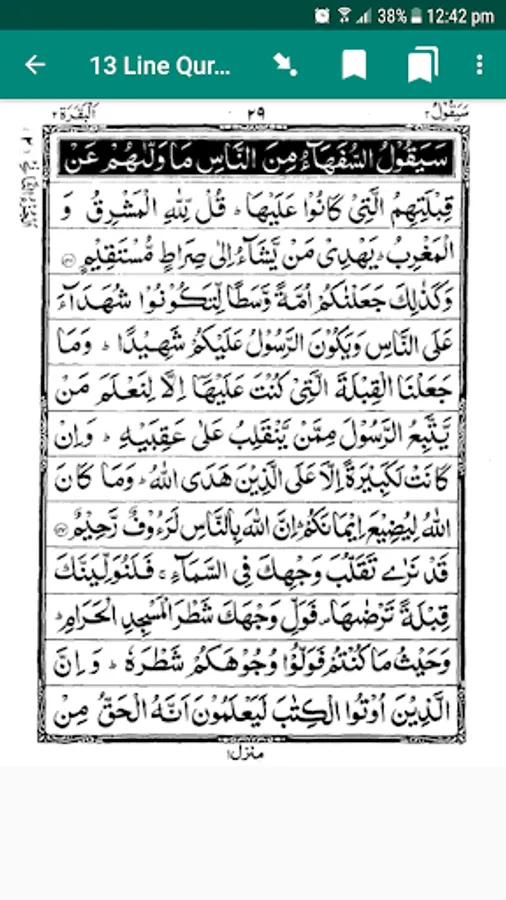 38% 12:42 pm
13 Line Qur...
سَيَقُوْلُ ٢ ٢٩ اَلْبَقَرَة ٢
سَيَقُوْلُ السُّفَهَآءُ مِنَ النَّاسِ مَا وَلّٰىهُمْ عَنْ
قِبْلَتِهِمُ الَّتِيْ كَانُوْا عَلَيْهَا ؕ قُلْ لِّلّٰهِ الْمَشْرِقُ وَ
الْمَغْرِبُ ؕ يَهْدِيْ مَنْ يَّشَآءُ اِلٰى صِرَاطٍ مُّسْتَقِيْمٍ
وَكَذٰلِكَ جَعَلْنٰكُمْ اُمَّةً وَّسَطًا لِّتَكُوْنُوْا شُهَدَآءَ
عَلَى النَّاسِ وَيَكُوْنَ الرَّسُوْلُ عَلَيْكُمْ شَهِيْدًا ؕ وَمَا
جَعَلْنَا الْقِبْلَةَ الَّتِيْ كُنْتَ عَلَيْهَآ اِلَّا لِنَعْلَمَ مَنْ
يَّتَّبِعُ الرَّسُوْلَ مِمَّنْ يَّنْقَلِبُ عَلٰى عَقِبَيْهِ ؕ وَاِنْ
كَانَتْ لَكَبِيْرَةً اِلَّا عَلَى الَّذِيْنَ هَدَى اللّٰهُ ؕ وَمَا كَانَ
اللّٰهُ لِيُضِيْعَ اِيْمَانَكُمْ ؕ اِنَّ اللّٰهَ بِالنَّاسِ لَرَءُوْفٌ رَّحِيْمٌ
قَدْ نَرٰى تَقَلُّبَ وَجْهِكَ فِي السَّمَآءِ ۚ فَلَنُوَلِّيَنَّكَ
قِبْلَةً تَرْضٰىهَا ۪ فَوَلِّ وَجْهَكَ شَطْرَ الْمَسْجِدِ الْحَرَامِ ؕ
وَحَيْثُ مَا كُنْتُمْ فَوَلُّوْا وُجُوْهَكُمْ شَطْرَهٗ ؕ وَاِنَّ
الَّذِيْنَ اُوْتُوا الْكِتٰبَ لَيَعْلَمُوْنَ اَنَّهُ الْحَقُّ مِنْ
منزل ١